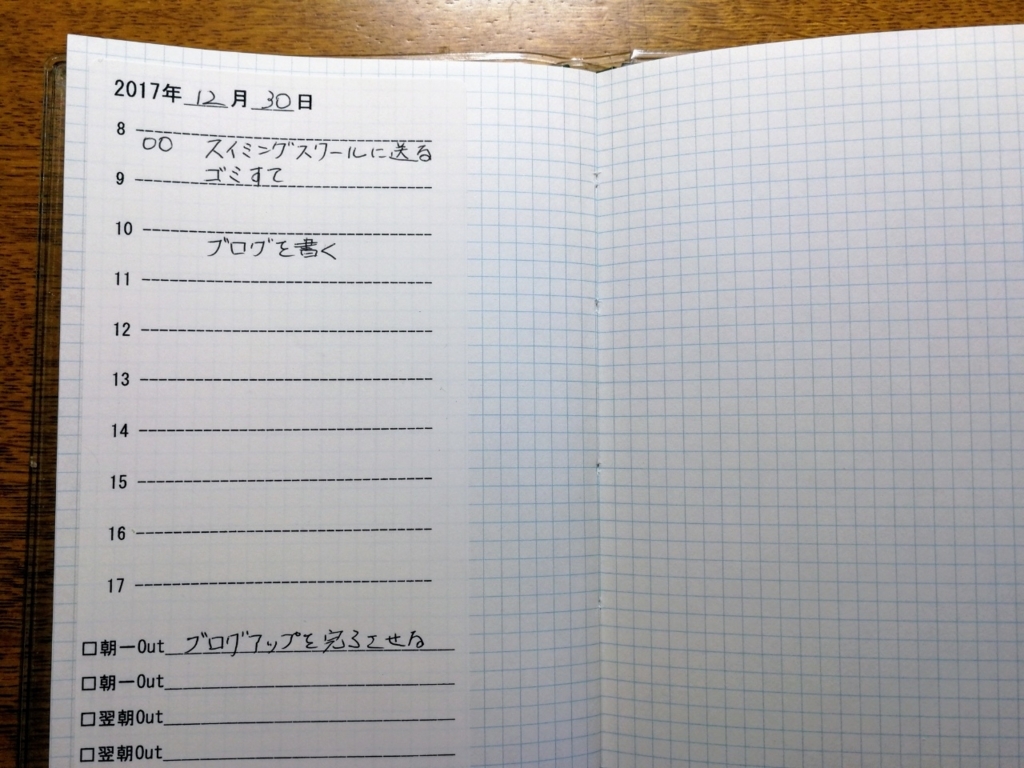 2017年 12 月 30 日
8
00 スイミングスクールに送る
ゴミすて
9
10
ブログを書く
11
12
13
14
15
16
17
□朝一Out ブログアップを完了させる
□朝一Out
□翌朝Out
□翌朝Out